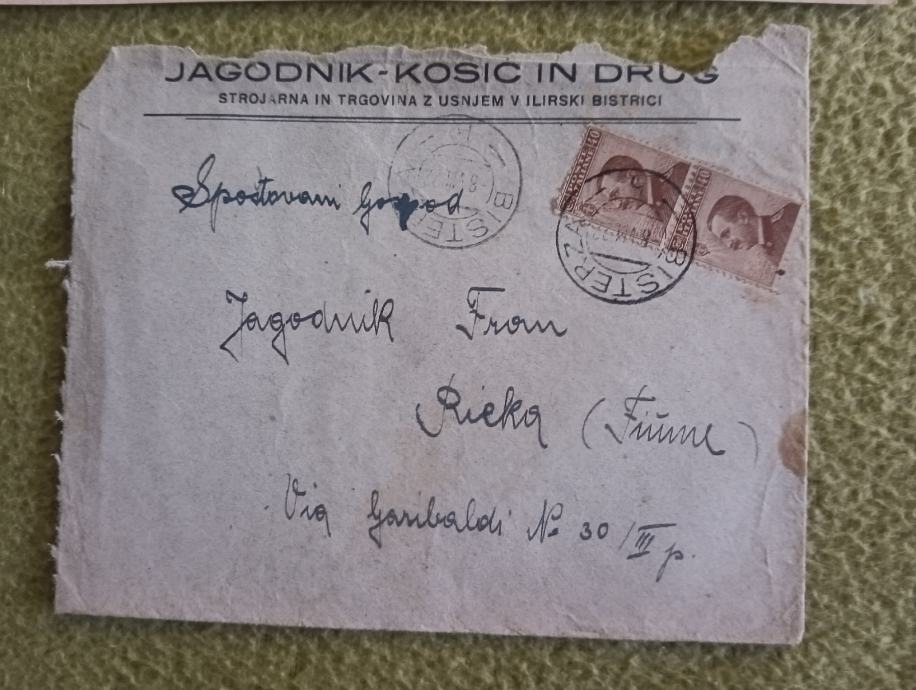 JAGODNIK-KOSIC IN DRUG
STROJARNA IN TRGOVINA Z USNJEM V ILIRSKI BISTRICI
Spoštovani Gospod
Jagodnik Fran
Rieka (Fiume)
Via Garibaldi No 30/III p.
BISTERZA
BISTERZA
40
40